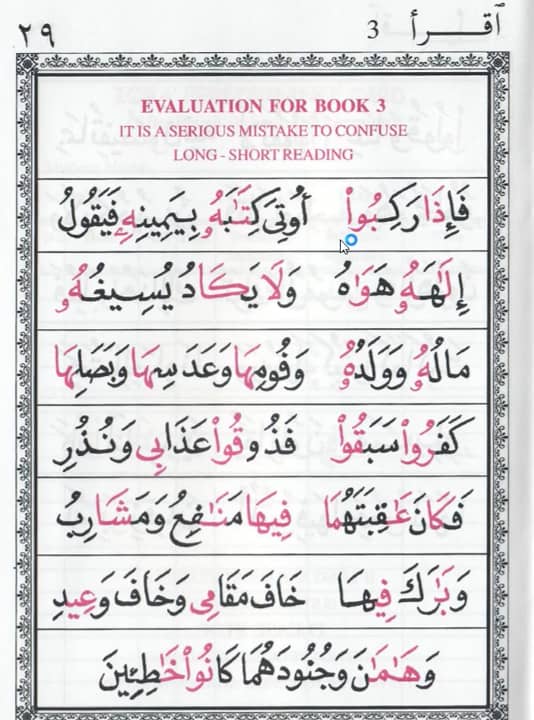 ٱقــرأ 3 ٢٩
EVALUATION FOR BOOK 3
IT IS A SERIOUS MISTAKE TO CONFUSE
LONG - SHORT READING
فَإِذَا رَكِبُوا۟ أُوتِىَ كِتَـٰبَهُۥ بِيَمِينِهِۦ فَيَقُولُ
إِلَـٰهَهُۥ هَوَاهُ وَلَا يَكَادُ يُسِيغُهُۥ
مَالُهُۥ وَوَلَدُهُۥ وَفُومِهَا وَعَدَسِهَا وَبَصَلِهَا
كَفَرُوا۟ سَبَقُوا۟ فَذُوقُوا۟ عَذَابِى وَنُذُرِ
فَكَانَ عَـٰقِبَتَهُمَا فِيهَا مَنَـٰفِعُ وَمَشَارِبُ
وَبَـٰرَكَ فِيهَا خَافَ مَقَامِى وَخَافَ وَعِيدِ
وَهَـٰمَـٰنَ وَجُنُودَهُمَا كَانُوا۟ خَـٰطِـِٔينَ